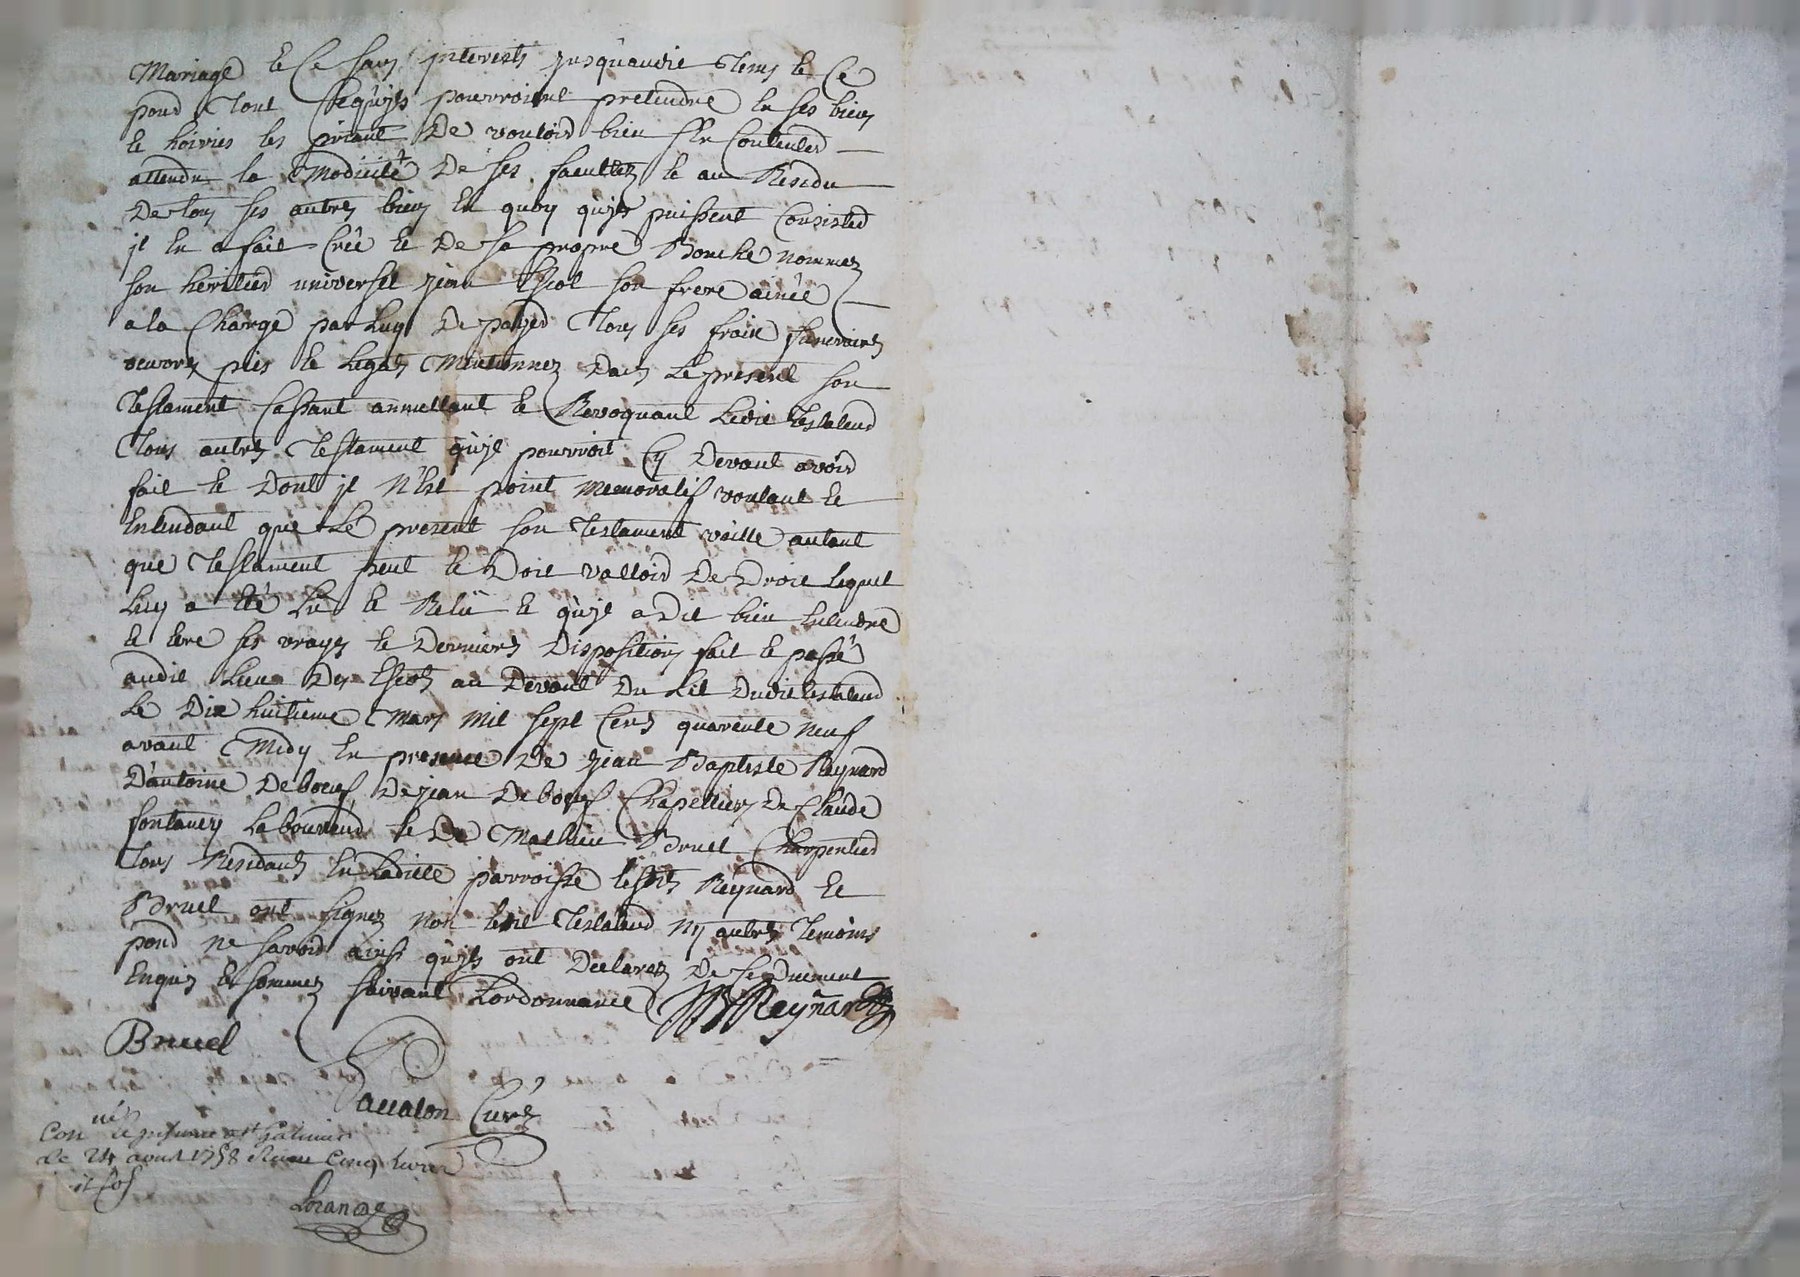 Mariage et ce sans interests jusquaudit tems et ce
pour tout ce qu'jls pourroient pretendre en ses biens
et hoiries les priant de vouloir bien s'en contenter
attendu la modicité de ses facultez et au Residu
de tous ses autres biens en quoy qu'jls puissent consister
jl en a fait créé et de sa propre Bouche nommez
son heritier universel jean Escot son frere ainée
a la charge par luy de payer tous ses frais funeraires
oeuvres pies et legats mentionnez dans le present son
testament cassant annullant et Revoquant ledit testateur
tous autres testament qu'jl pourroit cy devant avoir
fait et dont jl n'est point memoratif voulant et
entendant que le present son testament vaille autant
que testament peut et doit valloir de droit lequel
luy a été lû et Relû et qu'jl a dit bien entendre
et etre ses vrayes et dernieres dispositions fait et passé
audit lieu des Escots au devant du lit dudit testateur
le dix huitieme mars mil sept cens quarente neuf
avant midy en presence de jean Baptiste Reynard
d'antoine deboeuf de jean deboeuf chapelliers de claude
fontaney laboureur et de mathieu Bruel charpentier
tous Residants en ladite parroisse lesdits Reynard et
Bruel ont signez non ledit testateur ny autres temoins
pour ne savoir ainsi qu'jls ont declarez de ce duement
enquis et sommez suivant lordonnance Reynard
Bruel
curé
con né
le 24 aoust 1758 Reçu cinq livres
Lorange